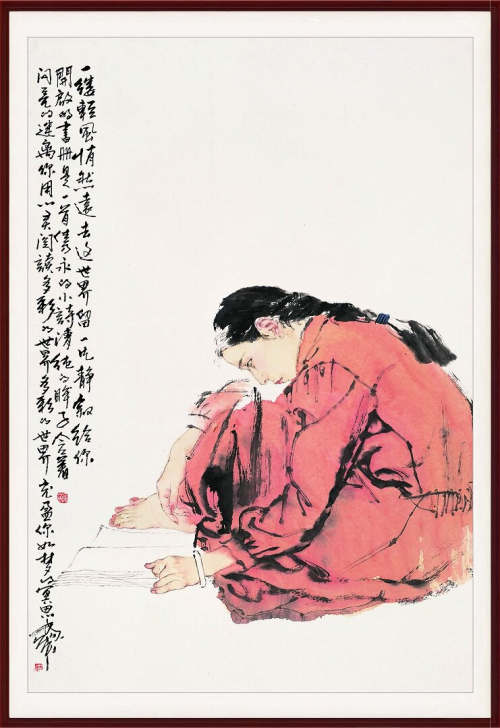 一縷輕風悄然遠去这世界留一片静寂給你
開啟的書册是一首雋永的小詩清純的眸子含着
闪亮的迷離你用心灵閱讀多彩的世界多彩的世界充盈你如梦的冥思